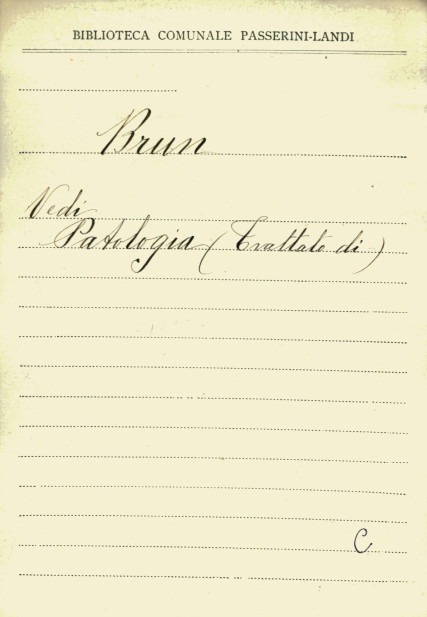 BIBLIOTECA COMUNALE PASSERINI-LANDI
Brun
Vedi
Patologia (Trattato di)
C